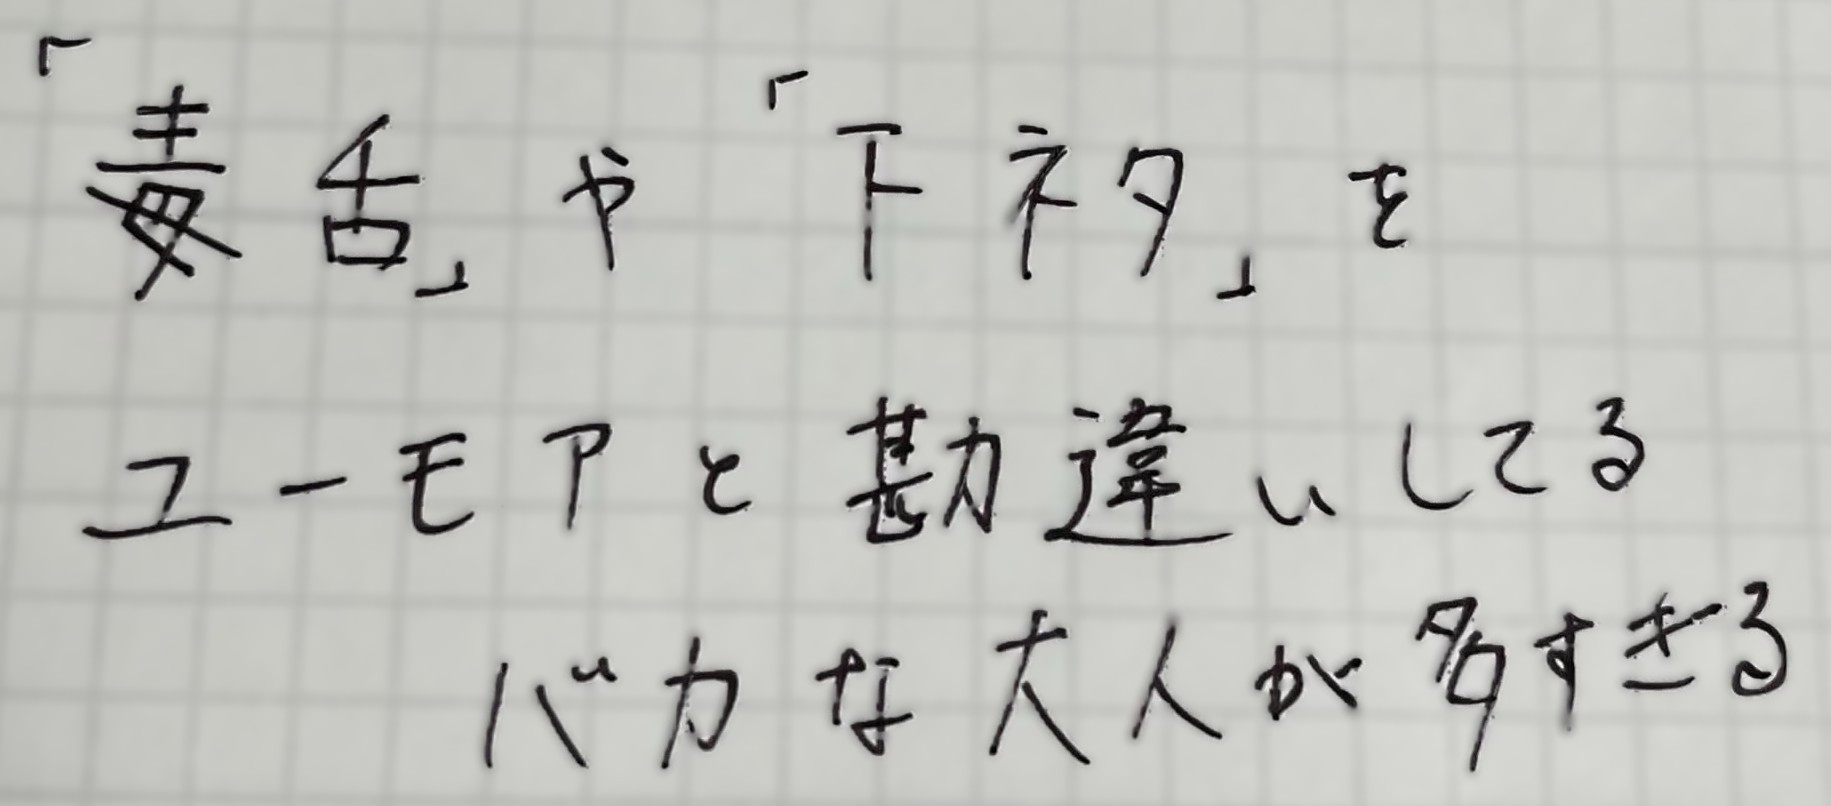 「毒舌」や「下ネタ」を
ユーモアと勘違いしてる
バカな大人が多すぎる